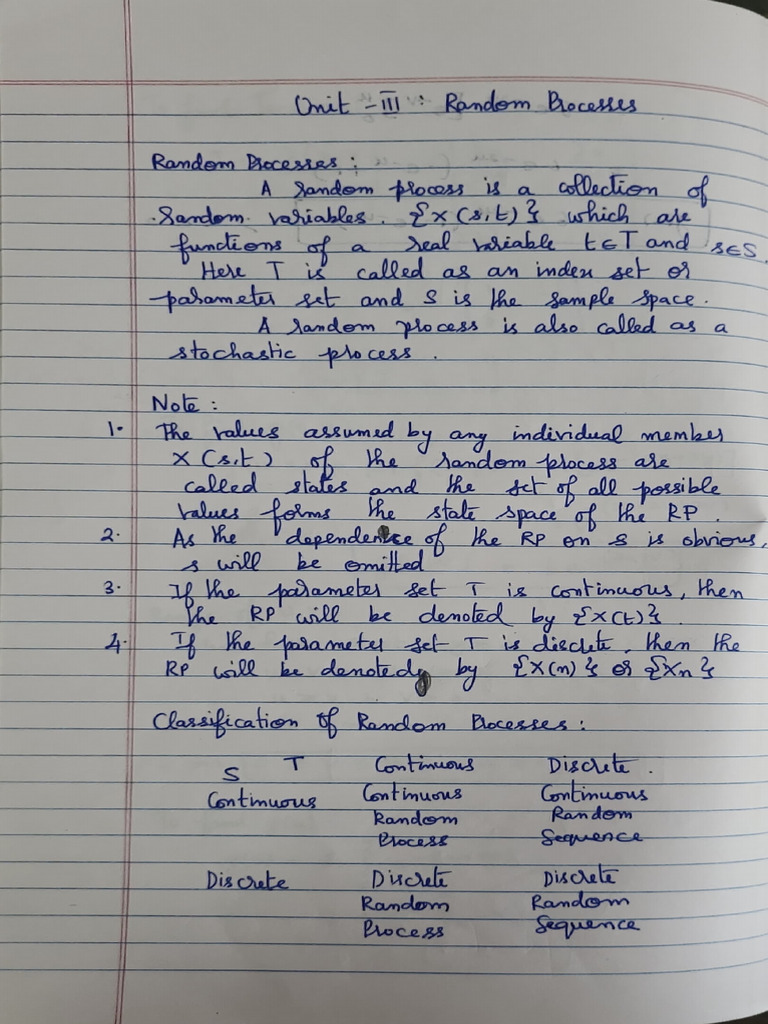 Unit - III : Random Processes
Random Processes :
A random process is a collection of
random variables {X(s,t)} which are
functions of a real variable t∈T and s∈S.
Here T is called as an index set or
parameter set and S is the sample space.
A random process is also called as a
stochastic process.
Note :
1. The values assumed by any individual member
X(s,t) of the random process are
called states and the set of all possible
values forms the state space of the RP.
2. As the dependence of the RP on s is obvious,
s will be omitted
3. If the parameter set T is continuous, then
the RP will be denoted by {X(t)}.
4. If the parameter set T is discrete, then the
RP will be denoted by {X(n)} or {Xn}
Classification of Random Processes :
S T Continuous Discrete.
Continuous Continuous Continuous
Random Random
Process Sequence
Discrete Discrete Discrete
Random Random
Process Sequence